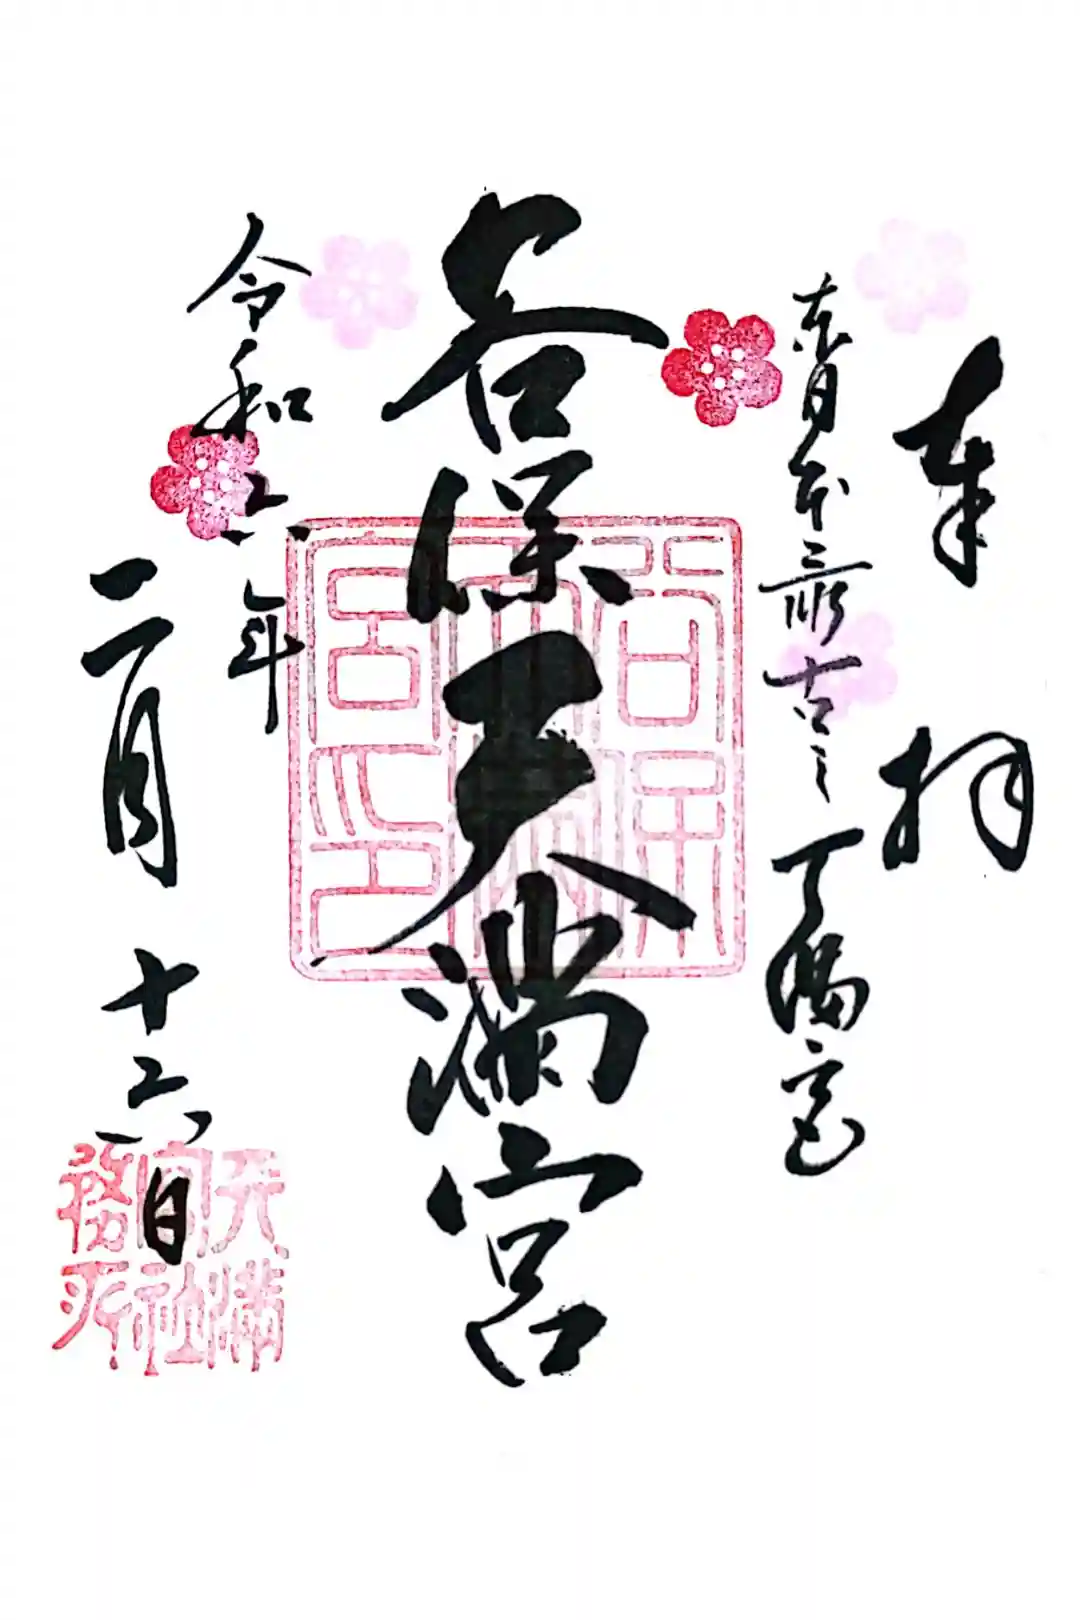 奉拝
東日本最古之天満宮
谷保天満宮
谷保天満宮印
令和六年
二月十六日
天満宮社務所